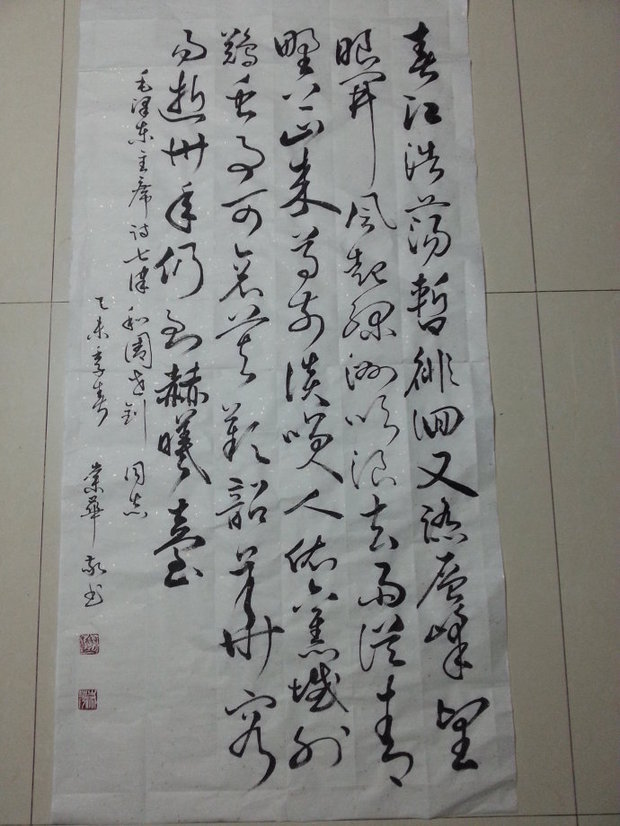 春江浩荡暫徘徊又踏層峰望
眼開风起绿洲吹浪去雨從青
野上山来尊前谈笑人依旧域外
鷄虫事可哀莫歎韶華容
易逝卅年仍到赫曦臺
毛泽东主席诗七律和周世钊同志
乙未季春 業華敬书